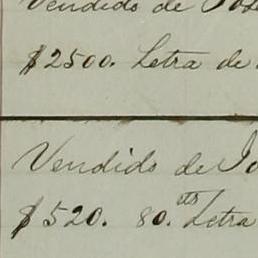 Vendido de José
$2500. Letra de
Vendido de Jo
$520. 80.cts Letra